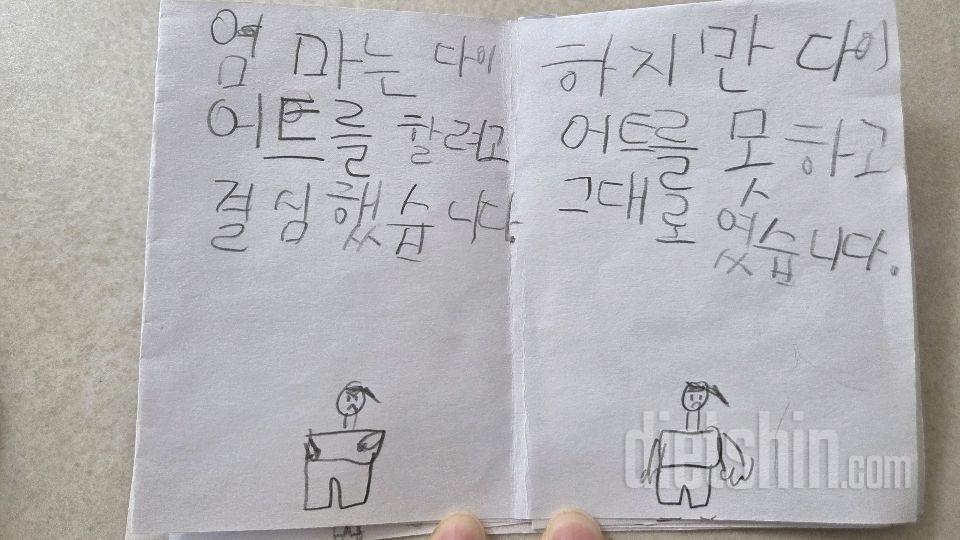 엄마는 다이
어트를 할려고
결심했습니다.
하지만 다이
어트를 못하고
그대로 였습니다.
dietshin.com